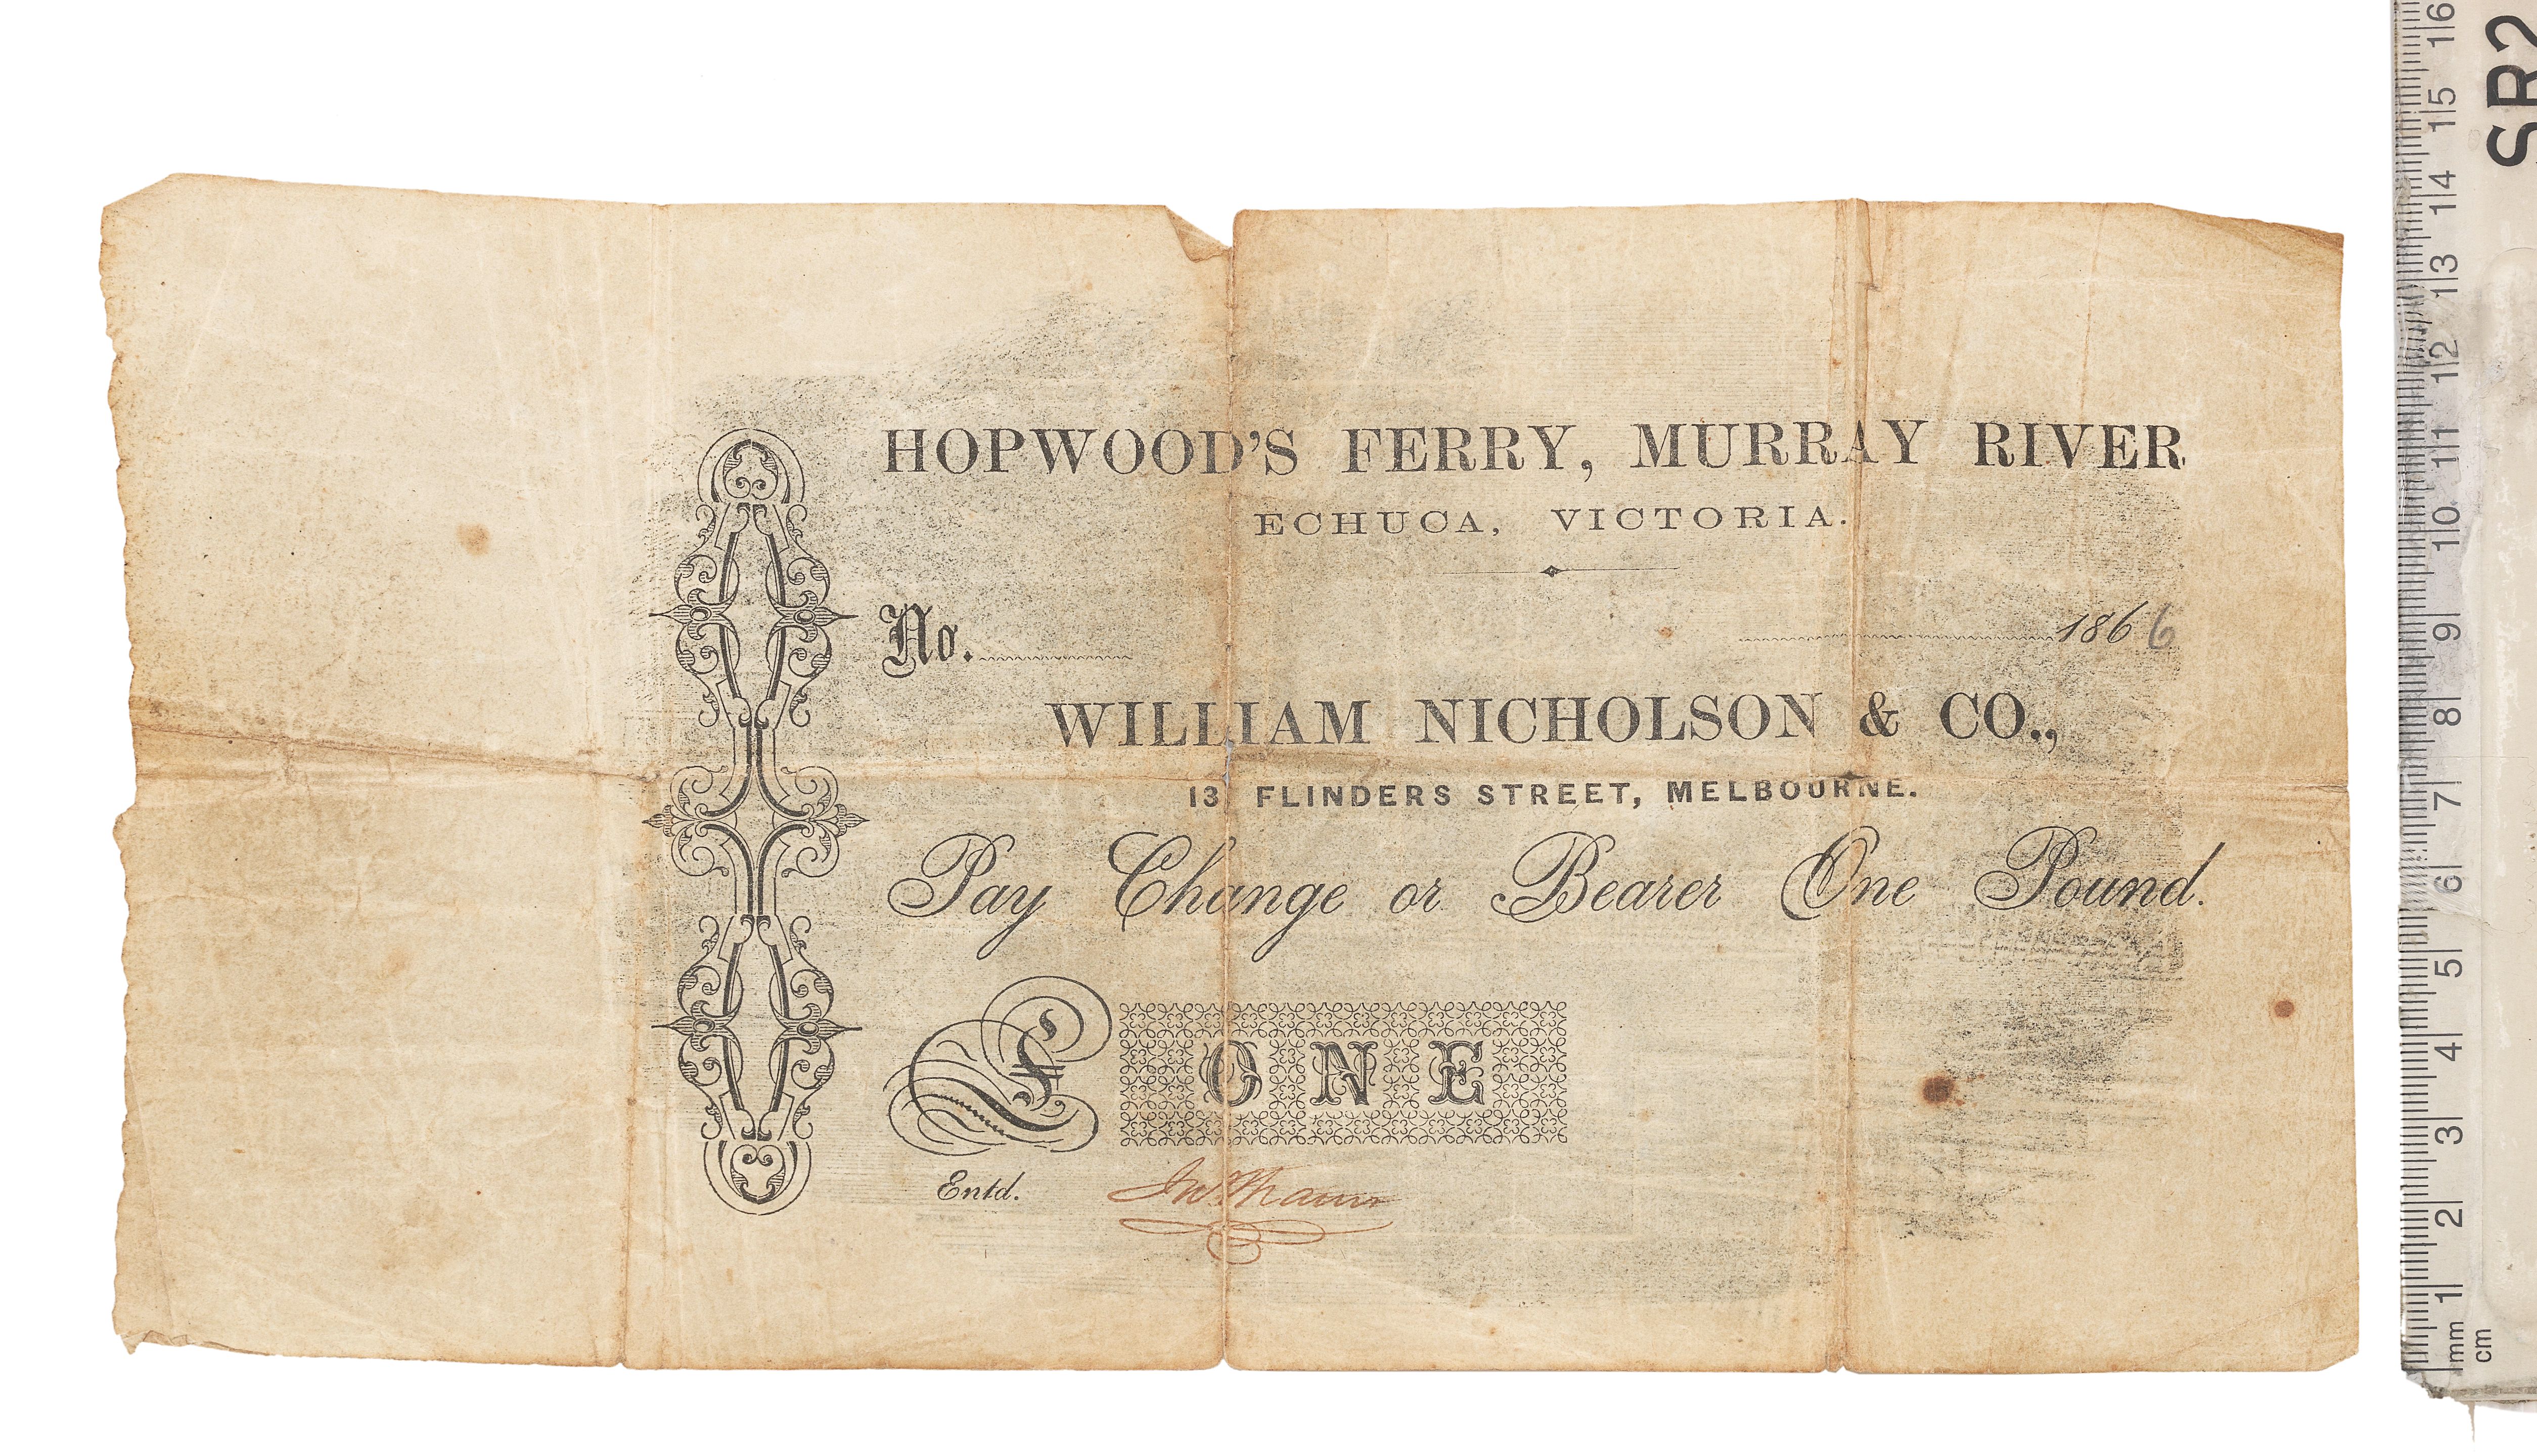 HOPWOOD'S FERRY, MURRAY RIVER
ECHUCA, VICTORIA.
No. 1866
WILLIAM NICHOLSON & CO.,
13 FLINDERS STREET, MELBOURNE.
Pay Change or Bearer One Pound.
£ ONE
Entd.
mm 1 2 3 4 5 6 7 8 9 10 11 12 13 14 15 16
cm
SR2